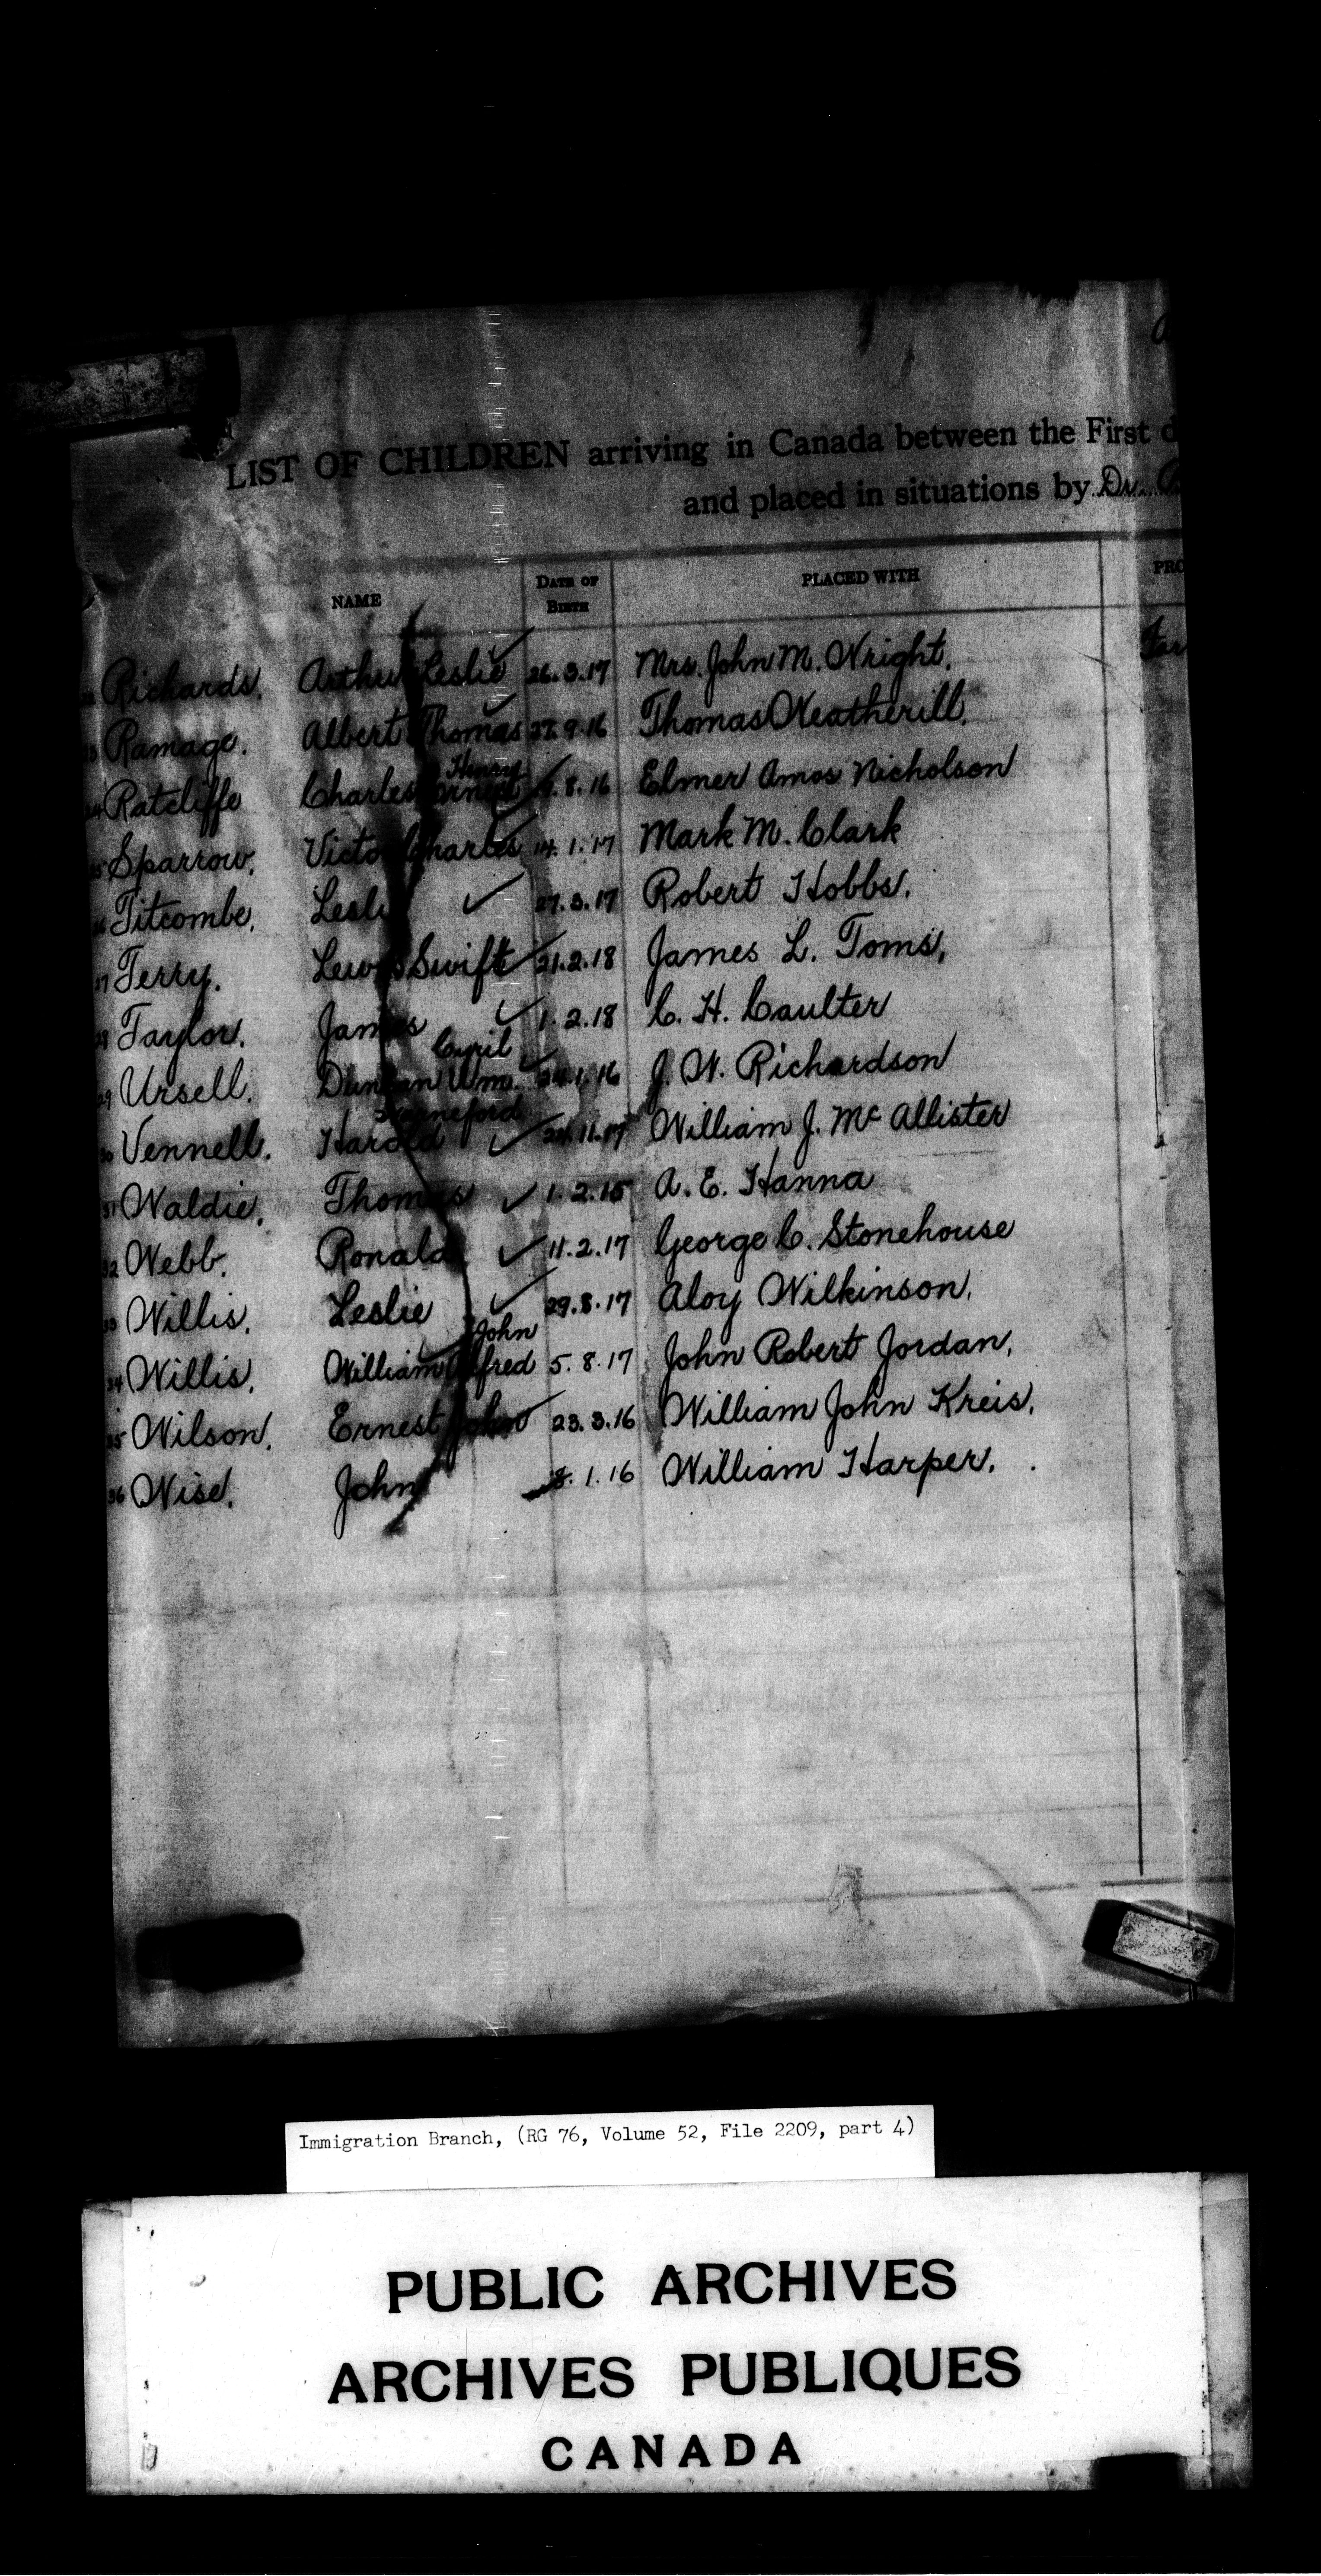 LIST OF CHILDREN arriving in Canada between the First d
and placed in situations by Dr.
NAME DATE OF BIRTH PLACED WITH PRO
Richards. Arthur Leslie 26.3.17 Mrs. John M. Wright. Far
Ramage. Albert Thomas 27.9.16 Thomas Weatherill.
Henry
24 Ratcliffe Charles Ernest 8.16 Elmer Amos Nicholson
Sparrow. Victor Charles 14.1.17 Mark M. Clark
Titcombe. Leslie 27.3.17 Robert Hobbs.
27 Terry. Lewis Swift 21.2.18 James L. Toms.
28 Taylor. James 1.2.18 C. H. Coulter
Cyril
29 Ursell. Duncan Wm. 1.16 J. W. Richardson
30 Vennell. Harold 24.11.17 William J. Mc Allister
31 Waldie. Thomas 1.2.15 A. E. Hanna
32 Webb. Ronald 11.2.17 George C. Stonehouse
33 Willis. Leslie 29.8.17 Aloy Wilkinson.
John
34 Willis. William Alfred 5.8.17 John Robert Jordan.
35 Wilson. Ernest John 23.3.16 William John Kreis.
36 Wise. John 8.1.16 William Harper.
Immigration Branch, (RG 76, Volume 52, File 2209, part 4)
PUBLIC ARCHIVES
ARCHIVES PUBLIQUES
CANADA